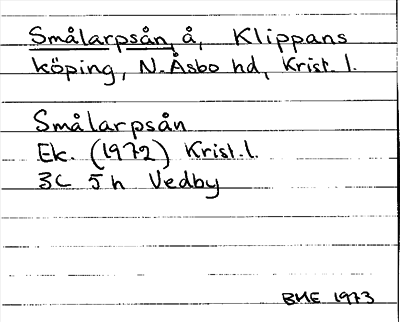 Smålarpsån, å, Klippans
köping, N. Åsbo hd, Krist. l.
Smålarpsån
Ek. (1972) Krist. l.
3C 5h Vedby
BME 1973